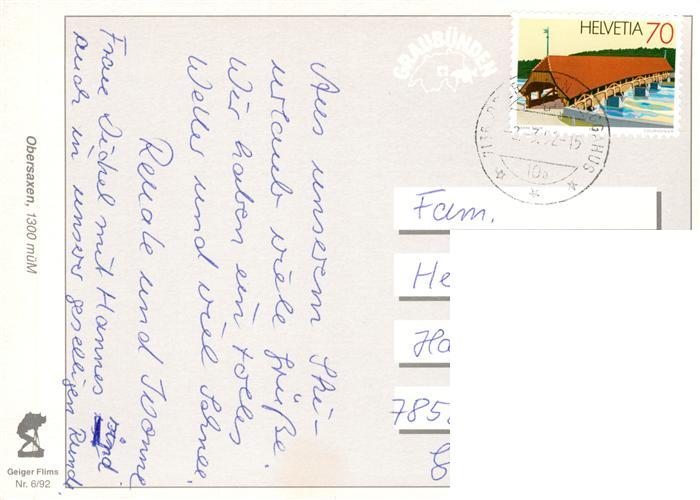 Aus unserem Ski-
urlaub viele Grüße.
Wir haben ein tolles
Wetter und viel Schnee.
Renate und Ivonne
Frau Dickel mit Hannes sind
auch in unserer geselligen Runde.
Obersaxen, 1300 müM
Geiger Flims
Nr. 6/92
GRAUBÜNDEN
HELVETIA 70
Fam.
He
Ha
785